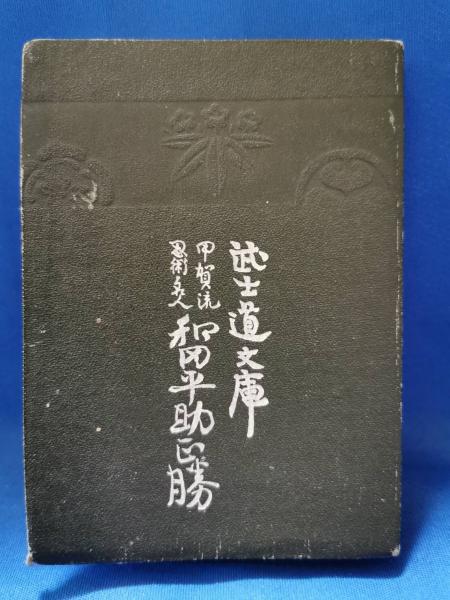 武士道文庫
甲賀流
忍術名人
和田平助正勝